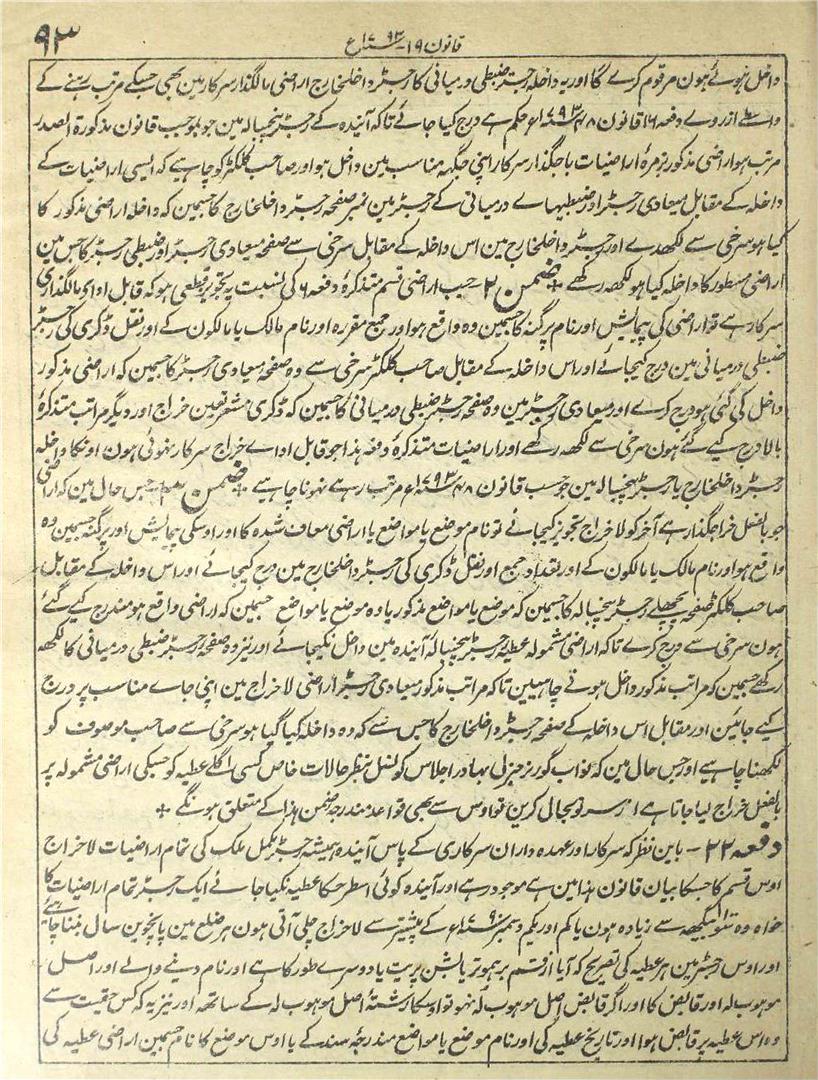 ۹۳
قانون ۱۹- ۱۷۹۳ع
داخل ہوئے ہون مرقوم کرے گا اور یہ داخلہ رجسٹر ضبطی درمیانی کا رجسٹر داخلخارج اراضی مالگذار سرکار مین بھی جسکے مرتب رہنے کے
واسطے ازروے دفعہ ۱۶ قانون ۴۸ ۱۷۹۳ع حکم ہے درج کیا جائے تاکہ آیندہ کے رجسٹر پنجسالہ مین جو بموجب قانون مذکورۃ الصدر
مرتب ہو اراضی مذکور بزمرۂ اراضیات باجگذار سرکار اپنی جگہہ مناسب مین داخل ہو اور صاحب کلکٹر کو چاہیے کہ ایسی اراضیات کے
داخلہ کے مقابل میعادی رجسٹر اور ضبطیہاے درمیانی کے رجسٹر مین نمبر صفحہ رجسٹر داخلخارج کا جسمین کہ داخلہ اراضی مذکور کا
کیا ہو سرخی سے لکھدے اور رجسٹر داخلخارج مین اس داخلہ کے مقابل سرخی سے صفحہ میعادی رجسٹر اور ضبطی رجسٹر کا جس مین
اراضی مسطور کا داخلہ کیا ہو لکھہ رکھے ÷ ضمن ۲- جب اراضی قسم متذکرۂ دفعہ ۶ کی نسبت یہ تجویز قطعی ہو کہ قابل اداے مالگذاری
سرکار ہے تو اراضی کی پیمایش اور نام پرگنہ کا جسمین وہ واقع ہو اور جمع مقررہ اور نام مالک یا مالکون کے اور نقل ڈگری کی رجسٹر
ضبطی درمیانی مین درج کیجائے اور اس داخلہ کے مقابل صاحب کلکٹر سرخی سے وہ صفحہ میعادی رجسٹر کا جسمین کہ اراضی مذکور
داخل کی گئی ہو درج کرے اور میعادی رجسٹر مین وہ صفحہ رجسٹر ضبطی درمیانی کا جسمین کہ ڈگری مشعر تعین خراج اور دیگر مراتب متذکرۂ
بالا درج کیے گئے ہون سرخی سے لکھہ رکھے اور اراضیات متذکرۂ دفعہ ہذا جو قابل اداے خراج سرکار نہوئی ہون اونکا داخلہ
رجسٹر داخلخارج یا رجسٹر پنجسالہ مین جو حسب قانون ۴۸ ۱۷۹۳ع مرتب رہے نہونا چاہیے ÷ ضمن ۳- جس حال مین کہ اراضی
جو بالفعل خراجگذار ہے آخر کو لاخراج تجویز کیجائے تو نام موضع یا مواضع یا اراضی معاف شدہ کا اور اوسکی پیمایش اور پرگنہ جسمین وہ
واقع ہو اور نام مالک یا مالکون کے اور تعداد جمع اور نقل ڈگری کی رجسٹر داخلخارج مین درج کیجائے اور اس داخلہ کے مقابل
صاحب کلکٹر صفحہ پچھلے رجسٹر پنجسالہ کا جسمین کہ موضع یا مواضع مذکور یا وہ موضع یا مواضع جسمین کہ اراضی واقع ہو مندرج کیے گئے
ہون سرخی سے درج کرے تاکہ اراضی مشمولہ عطیہ رجسٹر پنجسالہ آیندہ مین داخل نکیجائے اور نیز وہ صفحہ رجسٹر ضبطی درمیانی کا لکھہ
رکھے جسمین کہ مراتب مذکور داخل ہونے چاہییں تاکہ مراتب مذکور میعادی رجسٹر اراضی لاخراج مین اپنی جاے مناسب پر درج
کیے جائین اور مقابل اس داخلہ کے صفحہ رجسٹر داخلخارج کا جس سے کہ وہ داخلہ کیا گیا ہو سرخی سے صاحب موصوف کو
لکھنا چاہیے اور جس حال مین کہ نواب گورنر جنرل بہادر اجلاس کونسل بنظر حالات خاص کسی اگلے عطیہ کو جسکی اراضی مشمولہ پر
بالفعل خراج لیا جاتا ہے ازسرنو بحال کرین تو اوس سے بھی قواعد مندرجہ ضمن ہذا کے متعلق ہونگے ÷
دفعہ ۲۲- باین نظر کہ سرکار اور عہدہ داران سرکاری کے پاس آیندہ ہمیشہ رجسٹر مکمل ملک کی تمام اراضیات لاخراج
اوس قسم کا جسکا بیان قانون ہذا مین ہے موجود رہے اور آیندہ کوئی اسطرحکا عطیہ نکیا جائے ایک رجسٹر تمام اراضیات کا
خواہ وہ سَو بیگھہ سے زیادہ ہون یا کم اور یکم دسمبر ۱۷۹۰ع کے پیشتر سے لاخراج چلی آتی ہون ہر ضلع مین پانچوین سال بننا چاہیے
اور اوس رجسٹر مین ہر عطیہ کی تصریح کہ آیا از قسم برہموتر یا بشن پریت یا دوسرے طور کا ہے اور نام دینے والے اور اصل
موہوب لہ اور قابض کا اور اگر قابض اصل موہوب لہ نہو تو اوسکا رشتہ اصل موہوب لہ کے ساتھہ اور نیز یہ کہ کس حقیقت سے
وہ اس عطیہ پر قابض ہوا اور تاریخ عطیہ کی اور نام موضع یا مواضع مندرجہ سند کے یا اوس موضع کا نام جسمین اراضی عطیہ کی